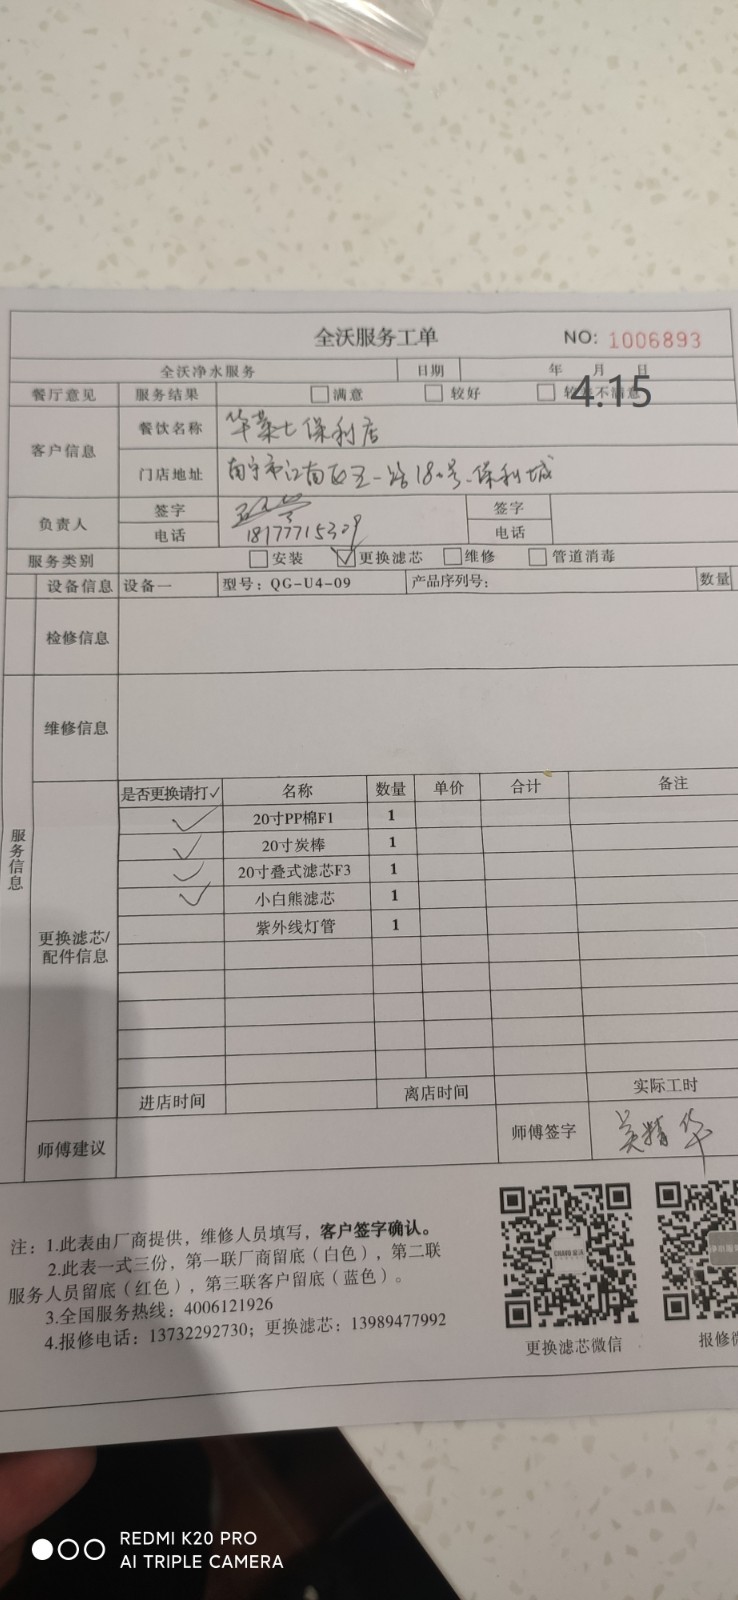 全沃服务工单 NO: 1006893
全沃净水服务 日期 年 月 日
4.15
餐厅意见 服务结果 满意 较好 不满意
客户信息 餐饮名称 华莱士保利店
门店地址 南宁市江南区五一路180号保利城
负责人 签字 签字
电话 18177715329 电话
服务类别 安装 更换滤芯 维修 管道消毒
设备信息 设备一 型号：QG-U4-09 产品序列号： 数量
检修信息
维修信息
服务信息
更换滤芯/配件信息
是否更换请打✓ 名称 数量 单价 合计 备注
✓ 20寸PP棉F1 1
✓ 20寸炭棒 1
✓ 20寸叠式滤芯F3 1
✓ 小白熊滤芯 1
紫外线灯管 1
进店时间 离店时间 实际工时
师傅建议 师傅签字 吴精华
注：1.此表由厂商提供，维修人员填写，客户签字确认。
2.此表一式三份，第一联厂商留底（白色），第二联
服务人员留底（红色），第三联客户留底（蓝色）。
3.全国服务热线：4006121926
4.报修电话：13732292730；更换滤芯：13989477992
更换滤芯微信 报修微
REDMI K20 PRO
AI TRIPLE CAMERA